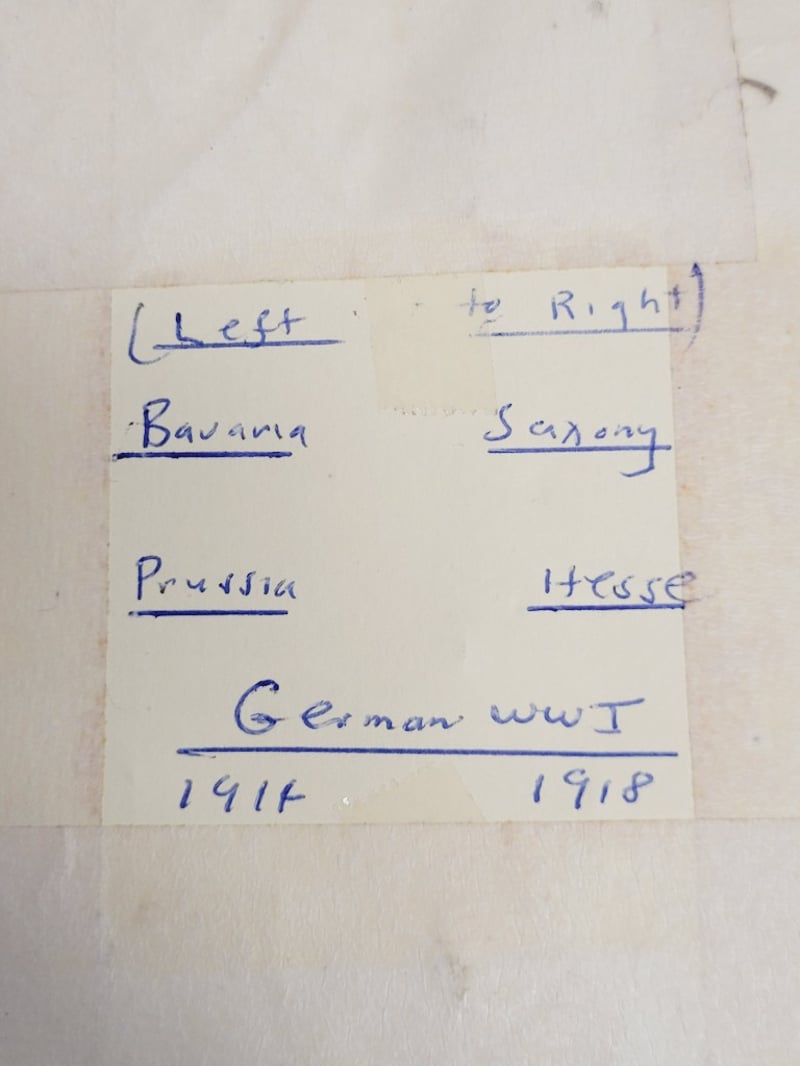 (Left to Right)
Bavaria Saxony
Prussia Hesse
German WWI
1914 1918